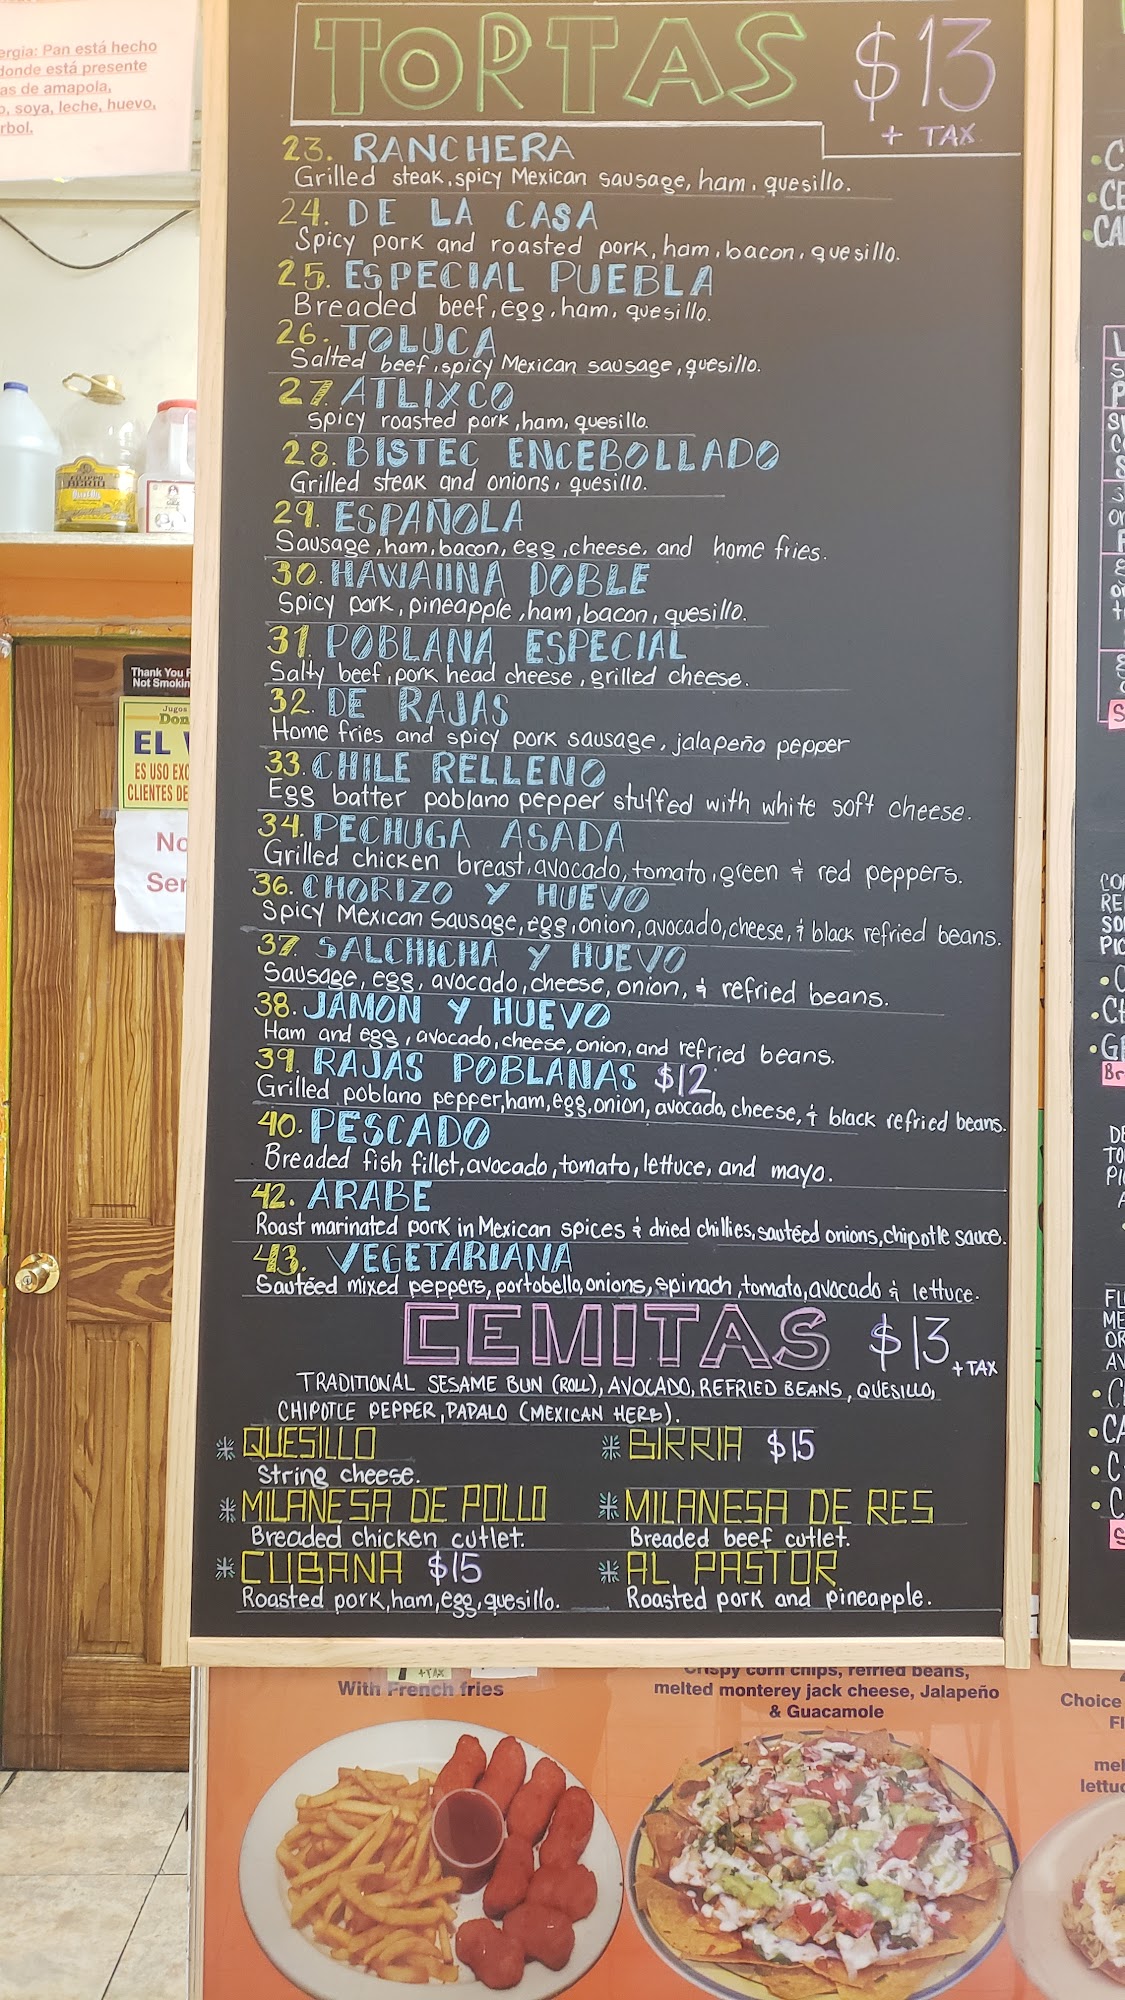 ergia: Pan está hecho
donde está presente
as de amapola,
o, soya, leche, huevo,
rbol.
TORTAS $13
+ TAX
23. RANCHERA
Grilled steak, spicy Mexican sausage, ham, quesillo.
24. DE LA CASA
Spicy pork and roasted pork, ham, bacon, quesillo.
25. ESPECIAL PUEBLA
Breaded beef, egg, ham, quesillo.
26. TOLUCA
Salted beef, spicy Mexican sausage, quesillo.
27. ATLIXCO
Spicy roasted pork, ham, quesillo.
28. BISTEC ENCEBOLLADO
Grilled steak and onions, quesillo.
29. ESPAÑOLA
Sausage, ham, bacon, egg, cheese, and home fries.
30. HAWAIINA DOBLE
Spicy pork, pineapple, ham, bacon, quesillo.
31. POBLANA ESPECIAL
Salty beef, pork head cheese, grilled cheese.
32. DE RAJAS
Home fries and spicy pork sausage, jalapeño pepper
33. CHILE RELLENO
Egg batter poblano pepper stuffed with white soft cheese.
34. PECHUGA ASADA
Grilled chicken breast, avocado, tomato, green & red peppers.
36. CHORIZO Y HUEVO
Spicy Mexican Sausage, egg, onion, avocado, cheese, & black refried beans.
37. SALCHICHA Y HUEVO
Sausage, egg, avocado, cheese, onion, & refried beans.
38. JAMON Y HUEVO
Ham and egg, avocado, cheese, onion, and refried beans.
39. RAJAS POBLANAS $12
Grilled poblano pepper, ham, egg, onion, avocado, cheese, & black refried beans.
40. PESCADO
Breaded fish fillet, avocado, tomato, lettuce, and mayo.
42. ARABE
Roast marinated pork in Mexican spices & dried chillies, sautéed onions, chipotle sauce.
43. VEGETARIANA
Sautéed mixed peppers, portobello, onions, spinach, tomato, avocado & lettuce.
CEMITAS $13 + TAX
TRADITIONAL SESAME BUN (ROLL), AVOCADO, REFRIED BEANS, QUESILLO,
CHIPOTLE PEPPER, PAPALO (MEXICAN HERB).
QUESILLO
String cheese.
BIRRIA $15
MILANESA DE POLLO
Breaded chicken cutlet.
MILANESA DE RES
Breaded beef cutlet.
CUBANA $15
Roasted pork, ham, egg, quesillo.
AL PASTOR
Roasted pork and pineapple.
+TAX
With French fries
Crispy corn chips, refried beans,
melted monterey jack cheese, Jalapeño
& Guacamole
Choice
Thank You F
Not Smokin
Jugos
Don
EL
ES USO EXC
CLIENTES DE
No
Ser